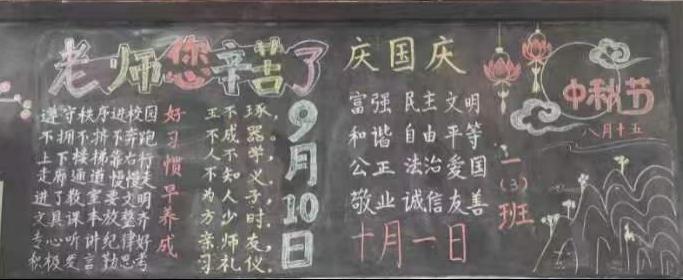 老师您辛苦了
遵守秩序进校园
不拥不挤不奔跑
上下楼梯靠右行
走廊通道慢慢走
进了教室要文明
文具课本放整齐
专心听讲纪律好
积极发言勤思考
好习惯早养成
玉不琢,
不成器。
人不学,
不知义。
为人子,
方少时。
亲师友,
习礼仪。
9月10日
庆国庆
富强 民主 文明
和谐 自由 平等
公正 法治 爱国
敬业 诚信 友善
十月一日
一(3)班
中秋节
八月十五